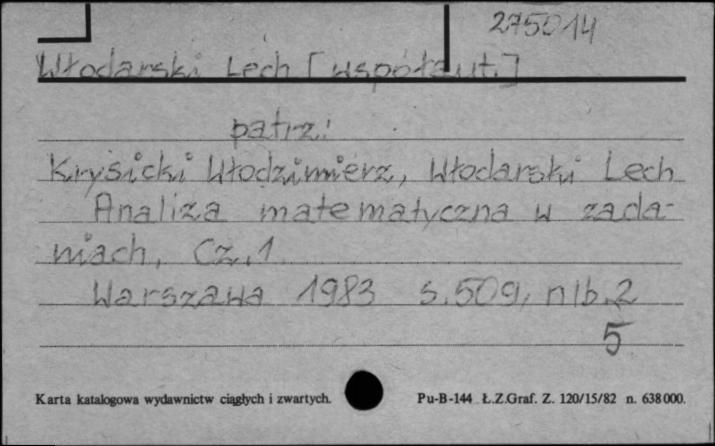 275014
Włodarski Lech [współaut.]
patrz:
Krysicki Włodzimierz, Włodarski Lech
Analiza matematyczna w zada-
niach, Cz.1
Warszawa 1983 s.509, nlb.2
5
Karta katalogowa wydawnictw ciągłych i zwartych. Pu-B-144 Ł.Z.Graf. Z. 120/15/82 n. 638000.